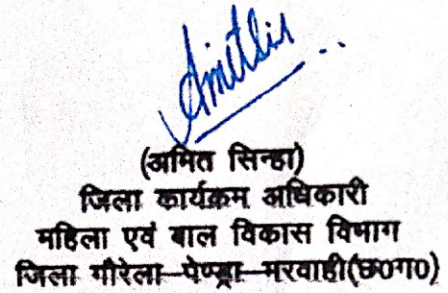 Amit Sin
(अमित सिन्हा)
जिला कार्यक्रम अधिकारी
महिला एवं बाल विकास विभाग
जिला गौरेला-पेण्ड्रा-मरवाही(छ०ग०)